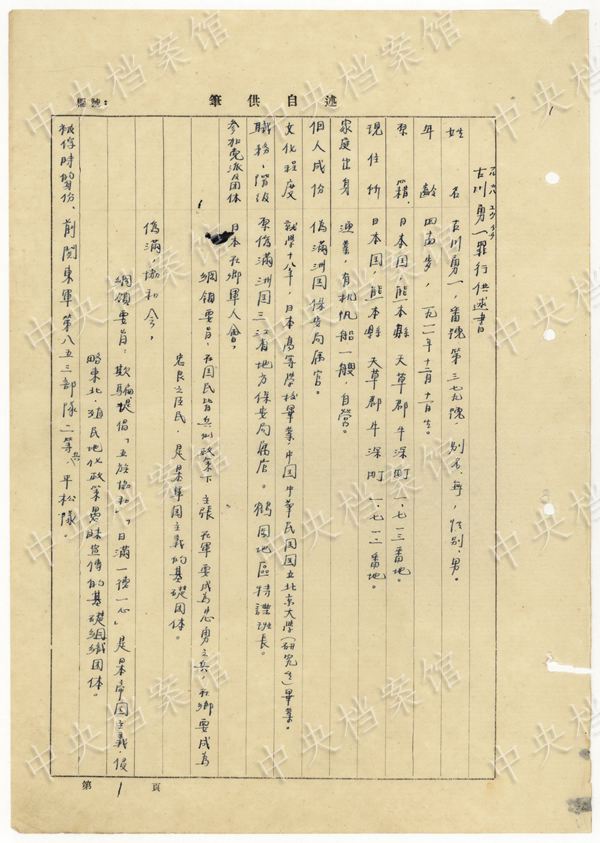 述自供筆
編號：
古川勇一罪行供述書
姓　名　古川勇一，番號第三七九號，別名、無，性別，男。
年　齡　四十四歲，一九一一年十二月十一日生。
原　籍，日本国，熊本縣　天草郡牛深町一，七一三番地。
現住所　日本国，熊本縣　天草郡牛深町一，七一三番地。
家庭出身　漁業，有机帆船一艘，自營。
個人成份　偽滿洲国保安局屬官。
文化程度　就學十八年，日本高等學校畢業，中国中華民国国立北京大學（研究生）畢業。
職務，階級　原偽滿洲国三江省地方保安局屬官。鶴岡地區特諜班長。
参加党派及团体　日本在鄉軍人會，
綱領要旨，在国民皆兵政策下，主張在軍要成為忠勇之兵，在鄉要成為
忠良之臣民，是日本軍国主義的基礎团体。
偽滿，協和会，
綱領要旨：欺騙提倡「五族協和」，「日滿一德一心」是日本帝国主義，侵
略東北，殖民地化政策愚昧宣傳的基礎組織团体。
被俘時的身份，前関東軍第八五三部隊二等兵，平松隊。
第　1　頁
1
中央档案馆